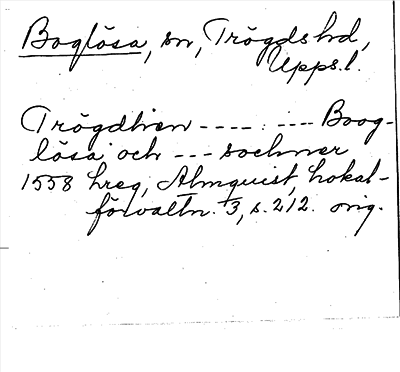 Boglösa, sn, Trögds hd,
Upps.l.
Trögdhren ---- : ---- Boog-
lösa och --- sochner
1558 hreg, Almquist, Lokal-
förvaltn. 3, s. 212. orig.